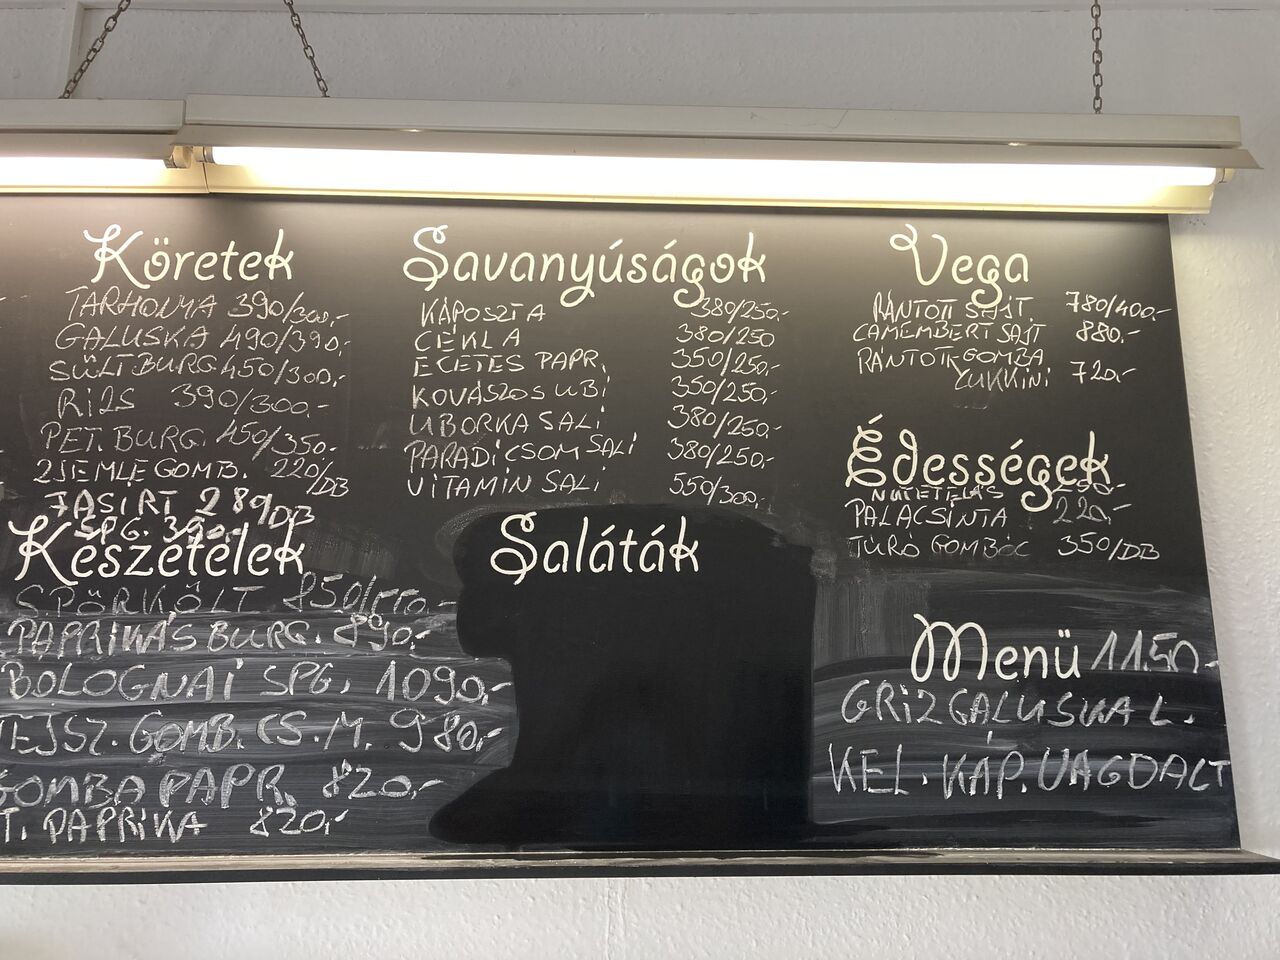 Köretek
TARHONYA 390/300,-
GALUSKA 490/390,-
SÜLT BURG 450/300,-
RIZS 390/300,-
PET. BURG. 450/350.-
ZSEMLEGOMB. 220/DB
FASIRT 280/DB
SPG. 390,-
Készételek
SPÖRKÖLT 850/
PAPRIKÁS BURG. 890,-
BOLOGNAI SPG. 1090,-
TEJSZ. GOMB. CS. M. 980,-
GOMBA PAPR. 820,-
T. PAPRIKA 820,-
Savanyúságok
KÁPOSZTA 380/250,-
CÉKLA 380/250
ECETES PAPR. 350/250,-
KOVÁSZOS UBI 350/250,-
UBORKA SALI 380/250,-
PARADICSOM SALI 380/250,-
VITAMIN SALI 550/300,-
Saláták
Vega
RÁNTOTT SAJT. 780/400,-
CAMEMBERT SAJT 880,-
RÁNTOTT GOMBA
CUKKINI 720,-
Édességek
PALACSINTA 220,-
TÚRÓ GOMBÓC 350/DB
Menü 1150,-
GRÍZGALUSKA L.
KEL. KÁP. VAGDALT